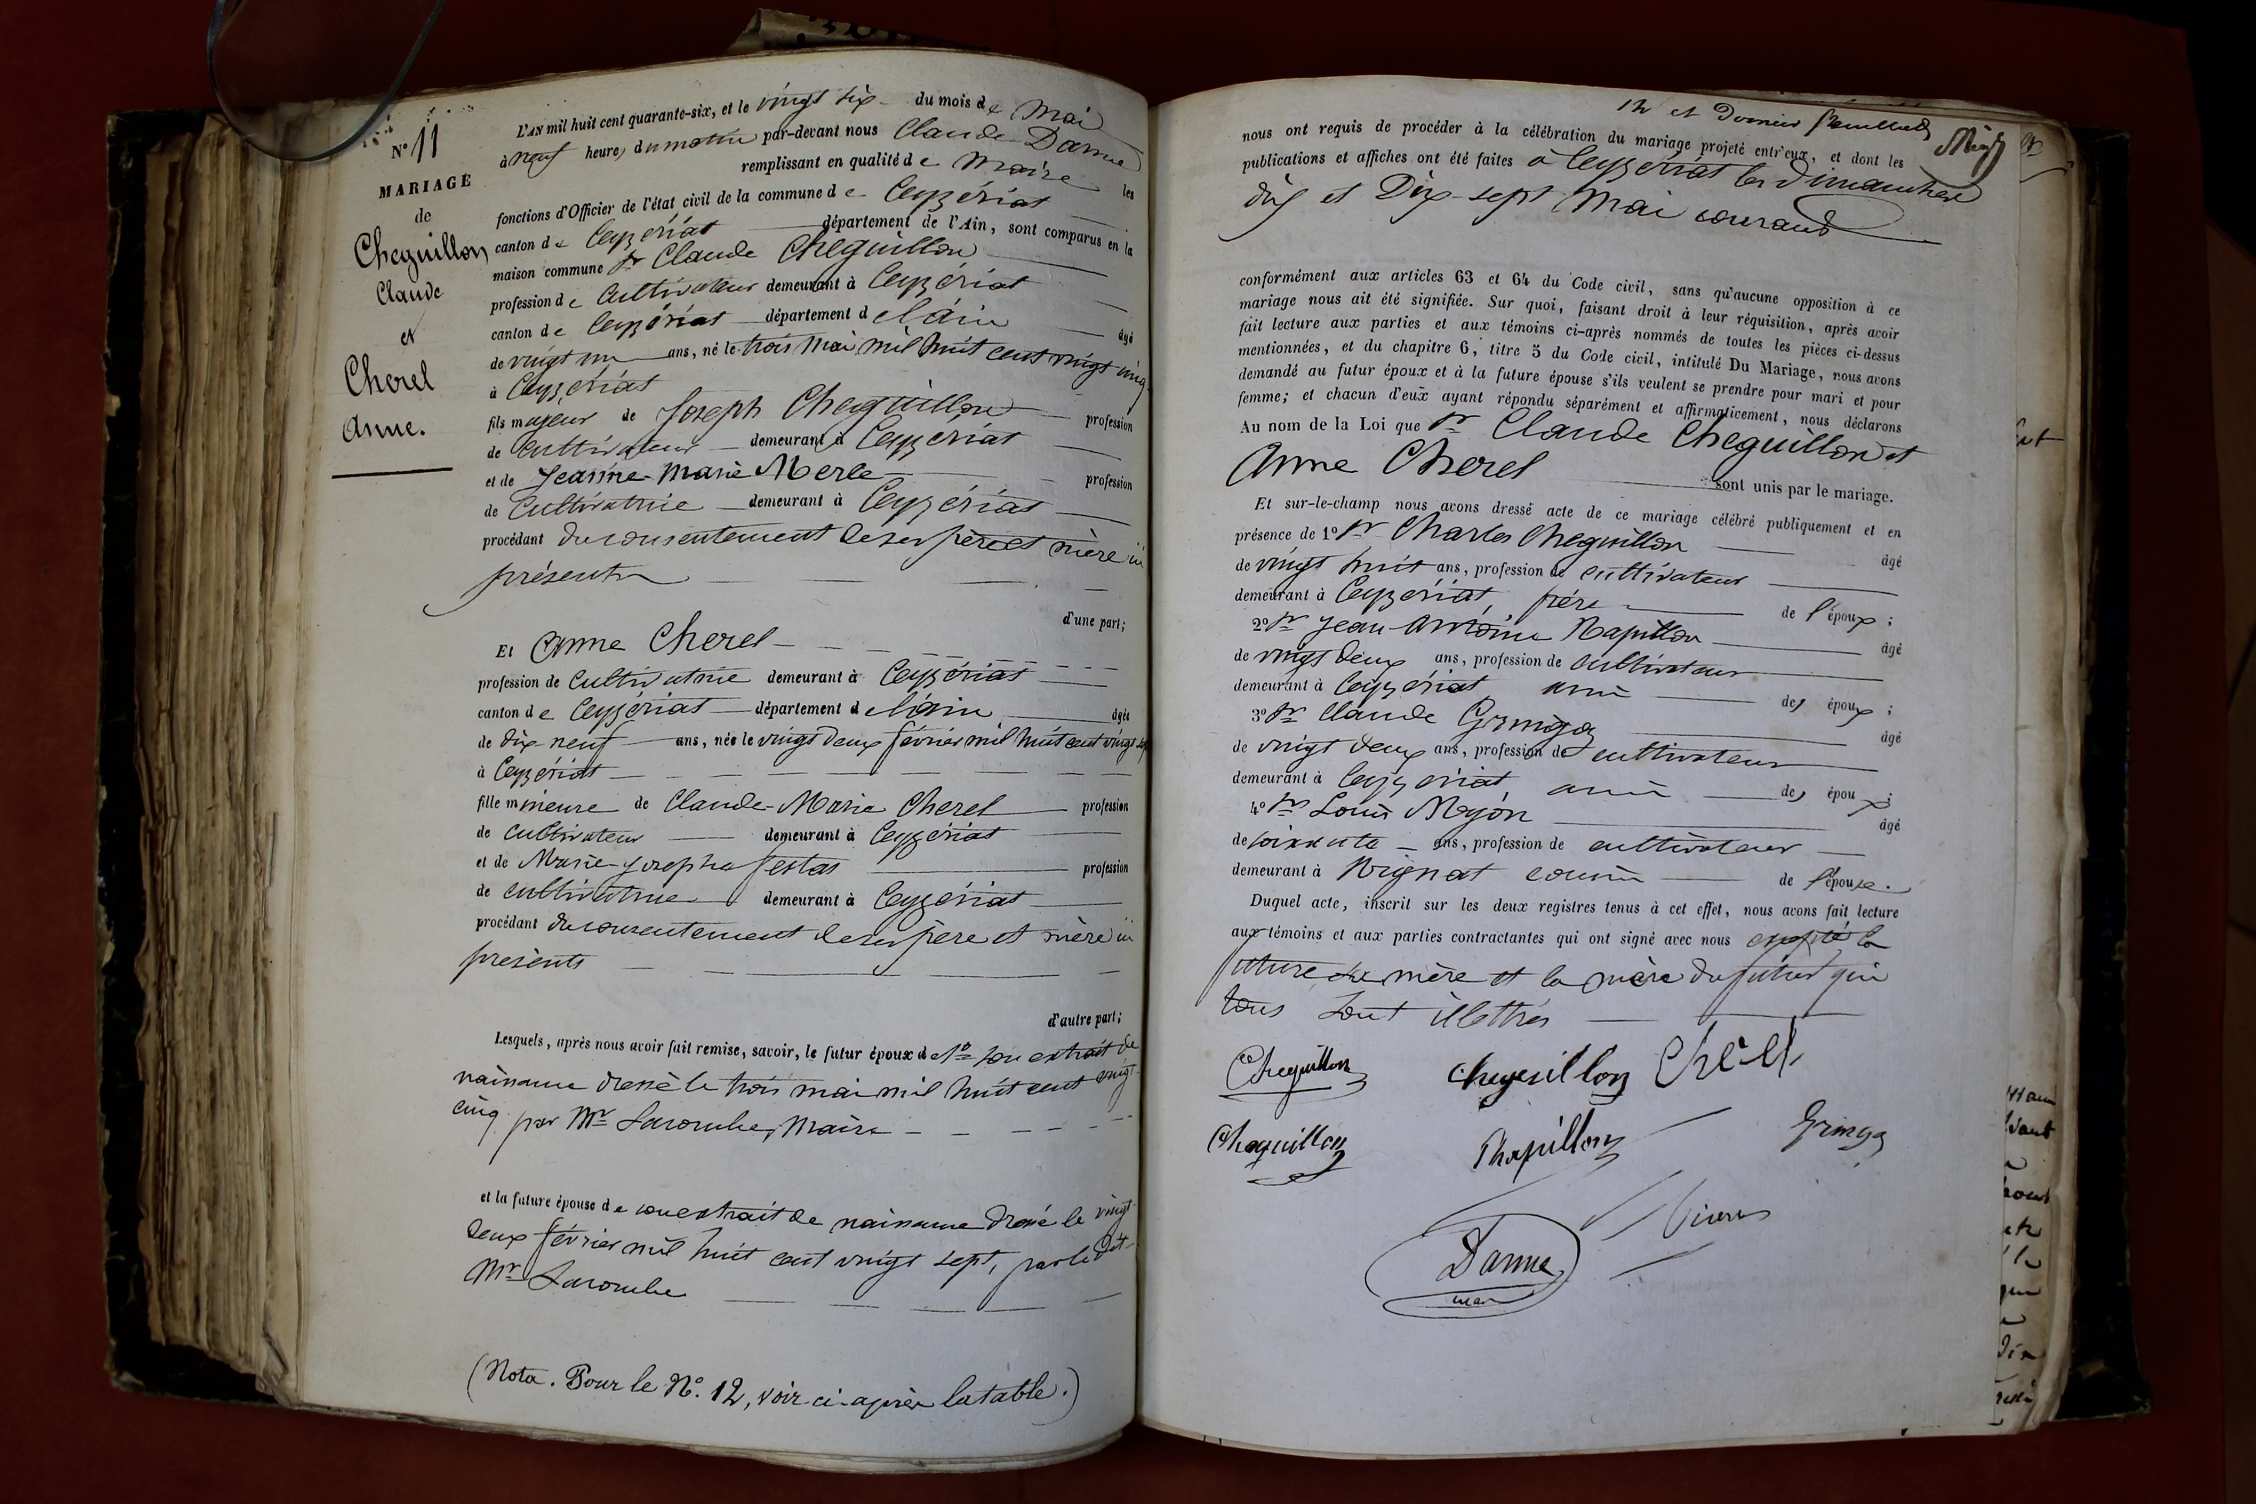 N° 11
MARIAGE
de
Cheguillon
Claude
et
Cherel
Anne.
L'AN mil huit cent quarante-six, et le vingt six du mois de Mai
à neuf heures du matin par-devant nous Claude Danne
remplissant en qualité de Maire les
fonctions d'Officier de l'état civil de la commune de Ceyzériat
canton de Ceyzériat département de l'Ain, sont comparus en la
maison commune Sr Claude Cheguillon
profession de Cultivateur demeurant à Ceyzériat
canton de Ceyzériat département de l'ain âgé
de vingt un ans, né le trois Mai mil huit cent vingt cinq
à Ceyzériat
fils majeur de Joseph Cheguillon profession
de Cultivateur demeurant à Ceyzériat
et de Jeanne-Marie Merle profession
de Cultivatrice demeurant à Ceyzériat
procédant du consentement de ses père et mère ici
présents
d'une part;
Et Anne Cherel
profession de Cultivatrice demeurant à Ceyzériat
canton de Ceyzériat département de l'ain âgée
de dix neuf ans, née le vingt deux février mil huit cent vingt sept
à Ceyzériat
fille mineure de Claude-Marie Cherel profession
de cultivateur demeurant à Ceyzériat
et de Marie-Josephe profession
de cultivatrice demeurant à Ceyzériat
procédant du consentement de ses père et mère ici
présents
d'autre part;
Lesquels, après nous avoir fait remise, savoir, le futur époux de 1° son extrait de
naissance dressé le trois mai mil huit cent vingt
cinq par Mr Lacombe, Maire
et la future épouse de son extrait de naissance dressé le vingt
deux février mil huit cent vingt sept, par le dit
Mr Lacombe
(Nota. Pour le N°. 12, voir ci-après la table.)
12 et Dernier feuillet
nous ont requis de procéder à la célébration du mariage projeté entr'eux, et dont les
publications et affiches ont été faites à Ceyzériat les dimanches
dix et Dix-sept Mai courant
conformément aux articles 63 et 64 du Code civil, sans qu'aucune opposition à ce
mariage nous ait été signifiée. Sur quoi, faisant droit à leur réquisition, après avoir
fait lecture aux parties et aux témoins ci-après nommés de toutes les pièces ci-dessus
mentionnées, et du chapitre 6, titre 5 du Code civil, intitulé Du Mariage, nous avons
demandé au futur époux et à la future épouse s'ils veulent se prendre pour mari et pour
femme; et chacun d'eux ayant répondu séparément et affirmativement, nous déclarons
Au nom de la Loi que Sr Claude Cheguillon et
Anne Cherel sont unis par le mariage.
Et sur-le-champ nous avons dressé acte de ce mariage célébré publiquement et en
présence de 1° Sr Charles Cheguillon âgé
de vingt huit ans, profession de cultivateur
demeurant à Ceyzériat, frère de l'époux;
2° Sr Jean-Antoine Rapillon âgé
de vingt deux ans, profession de cultivateur
demeurant à Ceyzériat ami des époux;
3° Sr Claude Gringoz âgé
de vingt deux ans, profession de cultivateur
demeurant à Ceyzériat, ami des époux;
4° Sr Louis Moyon âgé
de soixante ans, profession de cultivateur
demeurant à Rignat cousin de l'épouse.
Duquel acte, inscrit sur les deux registres tenus à cet effet, nous avons fait lecture
aux témoins et aux parties contractantes qui ont signé avec nous excepté la
future sa mère et la mère du futur qui
tous sont illettrés
Cheguillon Cheguillon Cherel
Cheguillon Rapillon Gringoz
Danne
maire